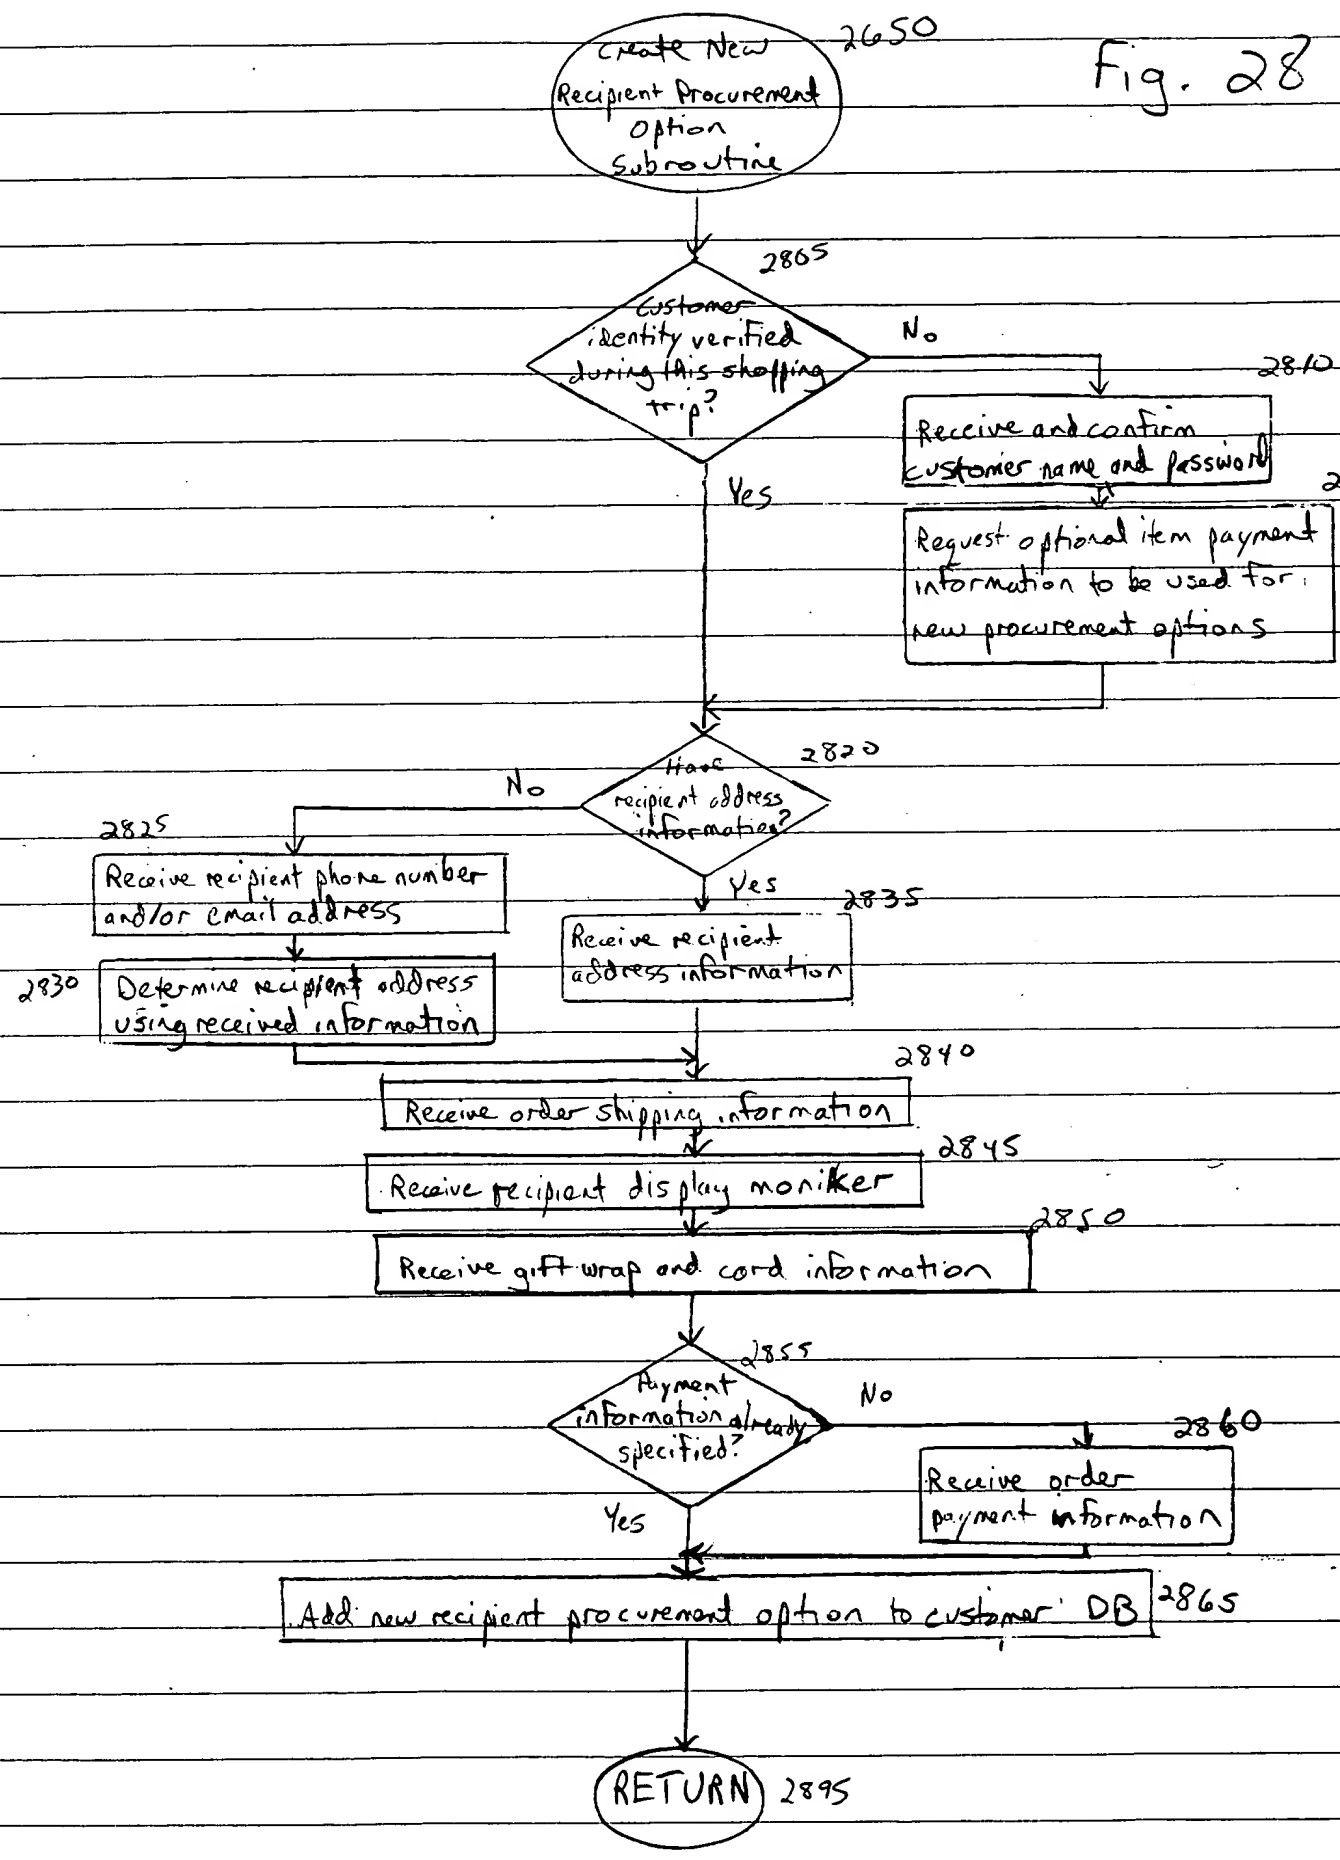 Fig. 28
2650
Create New
Recipient Procurement
Option
Subroutine
2805
Customer
identity verified
during this shopping
trip?
No
Yes
2810
Receive and confirm
customer name and password
2
Request optional item payment
information to be used for
new procurement options
2820
Have
recipient address
information?
No
Yes
2825
Receive recipient phone number
and/or email address
2830
Determine recipient address
using received information
2835
Receive recipient
address information
2840
Receive order shipping information
2845
Receive recipient display moniker
2850
Receive gift wrap and card information
2855
Payment
information already
specified?
No
Yes
2860
Receive order
payment information
2865
Add new recipient procurement option to customer DB
RETURN
2895